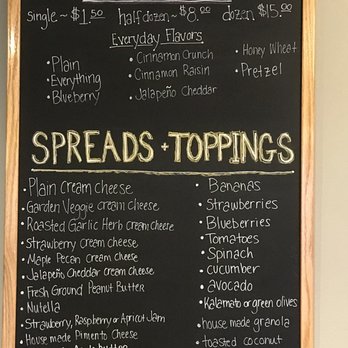 single ~ $1.50 half dozen ~ $8.00 dozen $15.00
Everyday Flavors
• Plain
• Everything
• Blueberry
• Cinnamon Crunch
• Cinnamon Raisin
• Jalapeño Cheddar
• Honey Wheat
• Pretzel
SPREADS + TOPPINGS
• Plain Cream cheese
• Garden Veggie cream cheese
• Roasted Garlic Herb cream cheese
• Strawberry cream cheese
• Maple Pecan cream cheese
• Jalapeño Cheddar cream cheese
• Fresh Ground Peanut Butter
• Nutella
• Strawberry, Raspberry or Apricot Jam
• House made Pimento Cheese
butter
• Bananas
• Strawberries
• Blueberries
• Tomatoes
• Spinach
• cucumber
• avocado
• Kalamata or green olives
• house made granola
• toasted coconut